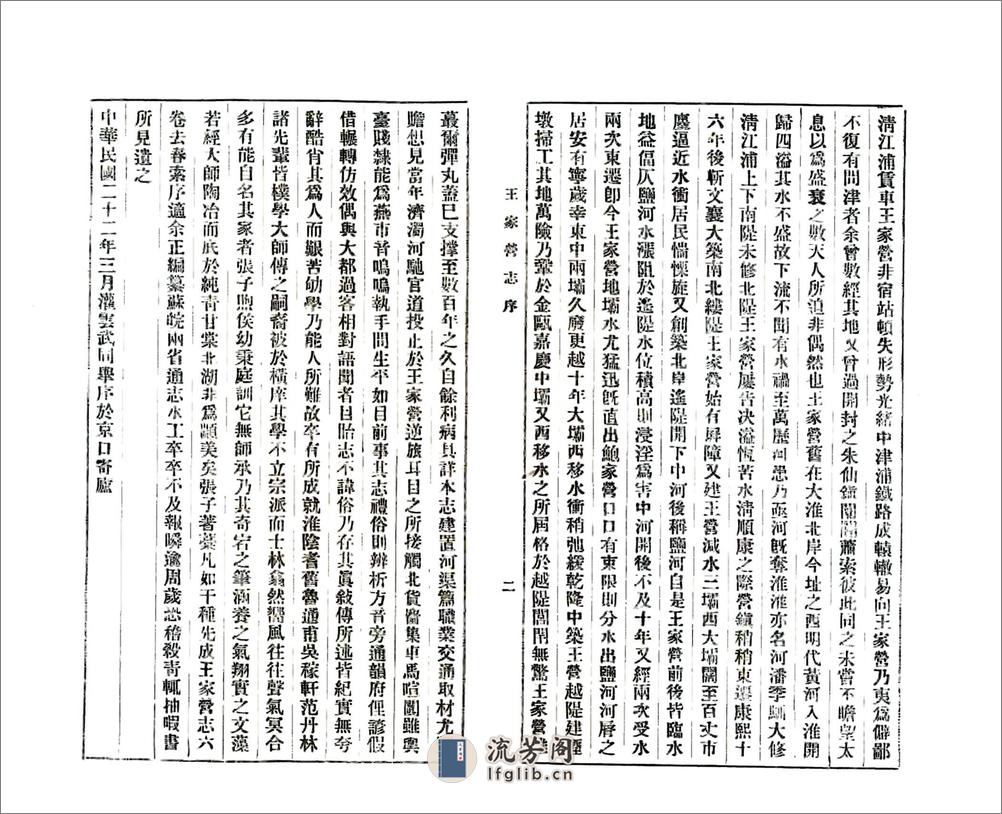 清江浦賃車王家營非宿站頓失形勢光緒中津浦鐵路成轅轍易向王家營乃夷爲僻鄙
不復有問津者余曾數經其地又曾過開封之朱仙鎮闤闠蕭索彼此同之未嘗不瞻望太
息以爲盛衰之數天人所迫非偶然也王家營舊在大淮北岸今址之西明代黃河入淮開
歸四溢其水不盛故下流不聞有水禍至萬歷間患乃亟河旣奪淮淮亦名河潘季馴大修
清江浦上下南隄未修北隄王家營屢告決溢恆苦水淸順康之際營鎮稍稍東遷康熙十
六年後靳文襄大築南北縷隄王家營始有屏障又建王營減水三壩西大壩闊至百丈市
廛逼近水衝居民惴懷旋又創築北岸遙隄開下中河後稱鹽河自是王家營前後皆臨水
地益偪仄鹽河水漲阻於遙隄水位積高則浸淫爲害中河開後不及十年又經兩次受水
兩次東遷卽今王家營地壩水尤猛迅旣直出鮑家營口口有束限則分水出鹽河脣之
居安有寧歲幸東中兩壩久廢更越十年大壩西移水衝稍弛緩乾隆中築王營越隄建
墩掃工其地萬險乃鞏於金甌嘉慶中壩又西移水之所屆格於越隄闤闠無驚王家營
王家營志序
二
蕞爾彈丸蓋已支撐至數百年之久自餘利病具詳本志建置河渠篇職業交通取材尤
贍想見當年濟濁河馳官道投止於王家營逆旅耳目之所接觸北貨齒集車馬喧闐雖輿
臺賤隸能爲燕市音嗚嗚執手問生平如目前事其志禮俗則辨析方音旁通韻府俚諺假
借輾轉仿效偶與大都過客相對語聞者目眙志不諱俗乃存其眞敍傳所述皆紀實無夸
辭酷肖其爲人而艱苦劬學乃能人所難故卒有所成就淮陰耆舊魯通甫吳稼軒范丹林
諸先輩皆樸學大師傳之嗣裔被於橫庠其學不立宗派而士林翕然嚮風往往聲氣冥合
多有能自名其家者張子煦侯幼秉庭訓它無師承乃其奇宕之筆涵養之氣翔實之文藻
若經大師陶冶而底於純靑甘棠北湖非爲顓美矣張子著藁凡如干種先成王家營志六
卷去春索序適余正編纂蘇皖兩省通志水工卒卒不及報瞬逾周歲恐稽殺靑輒抽暇書
所見遺之
中華民國二十二年三月灌雲武同舉序於京口寄廬
流芳阁
lfglib.cn